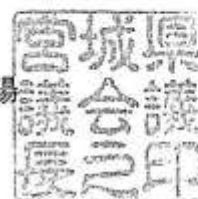 易
宮城県
議会議
長之印